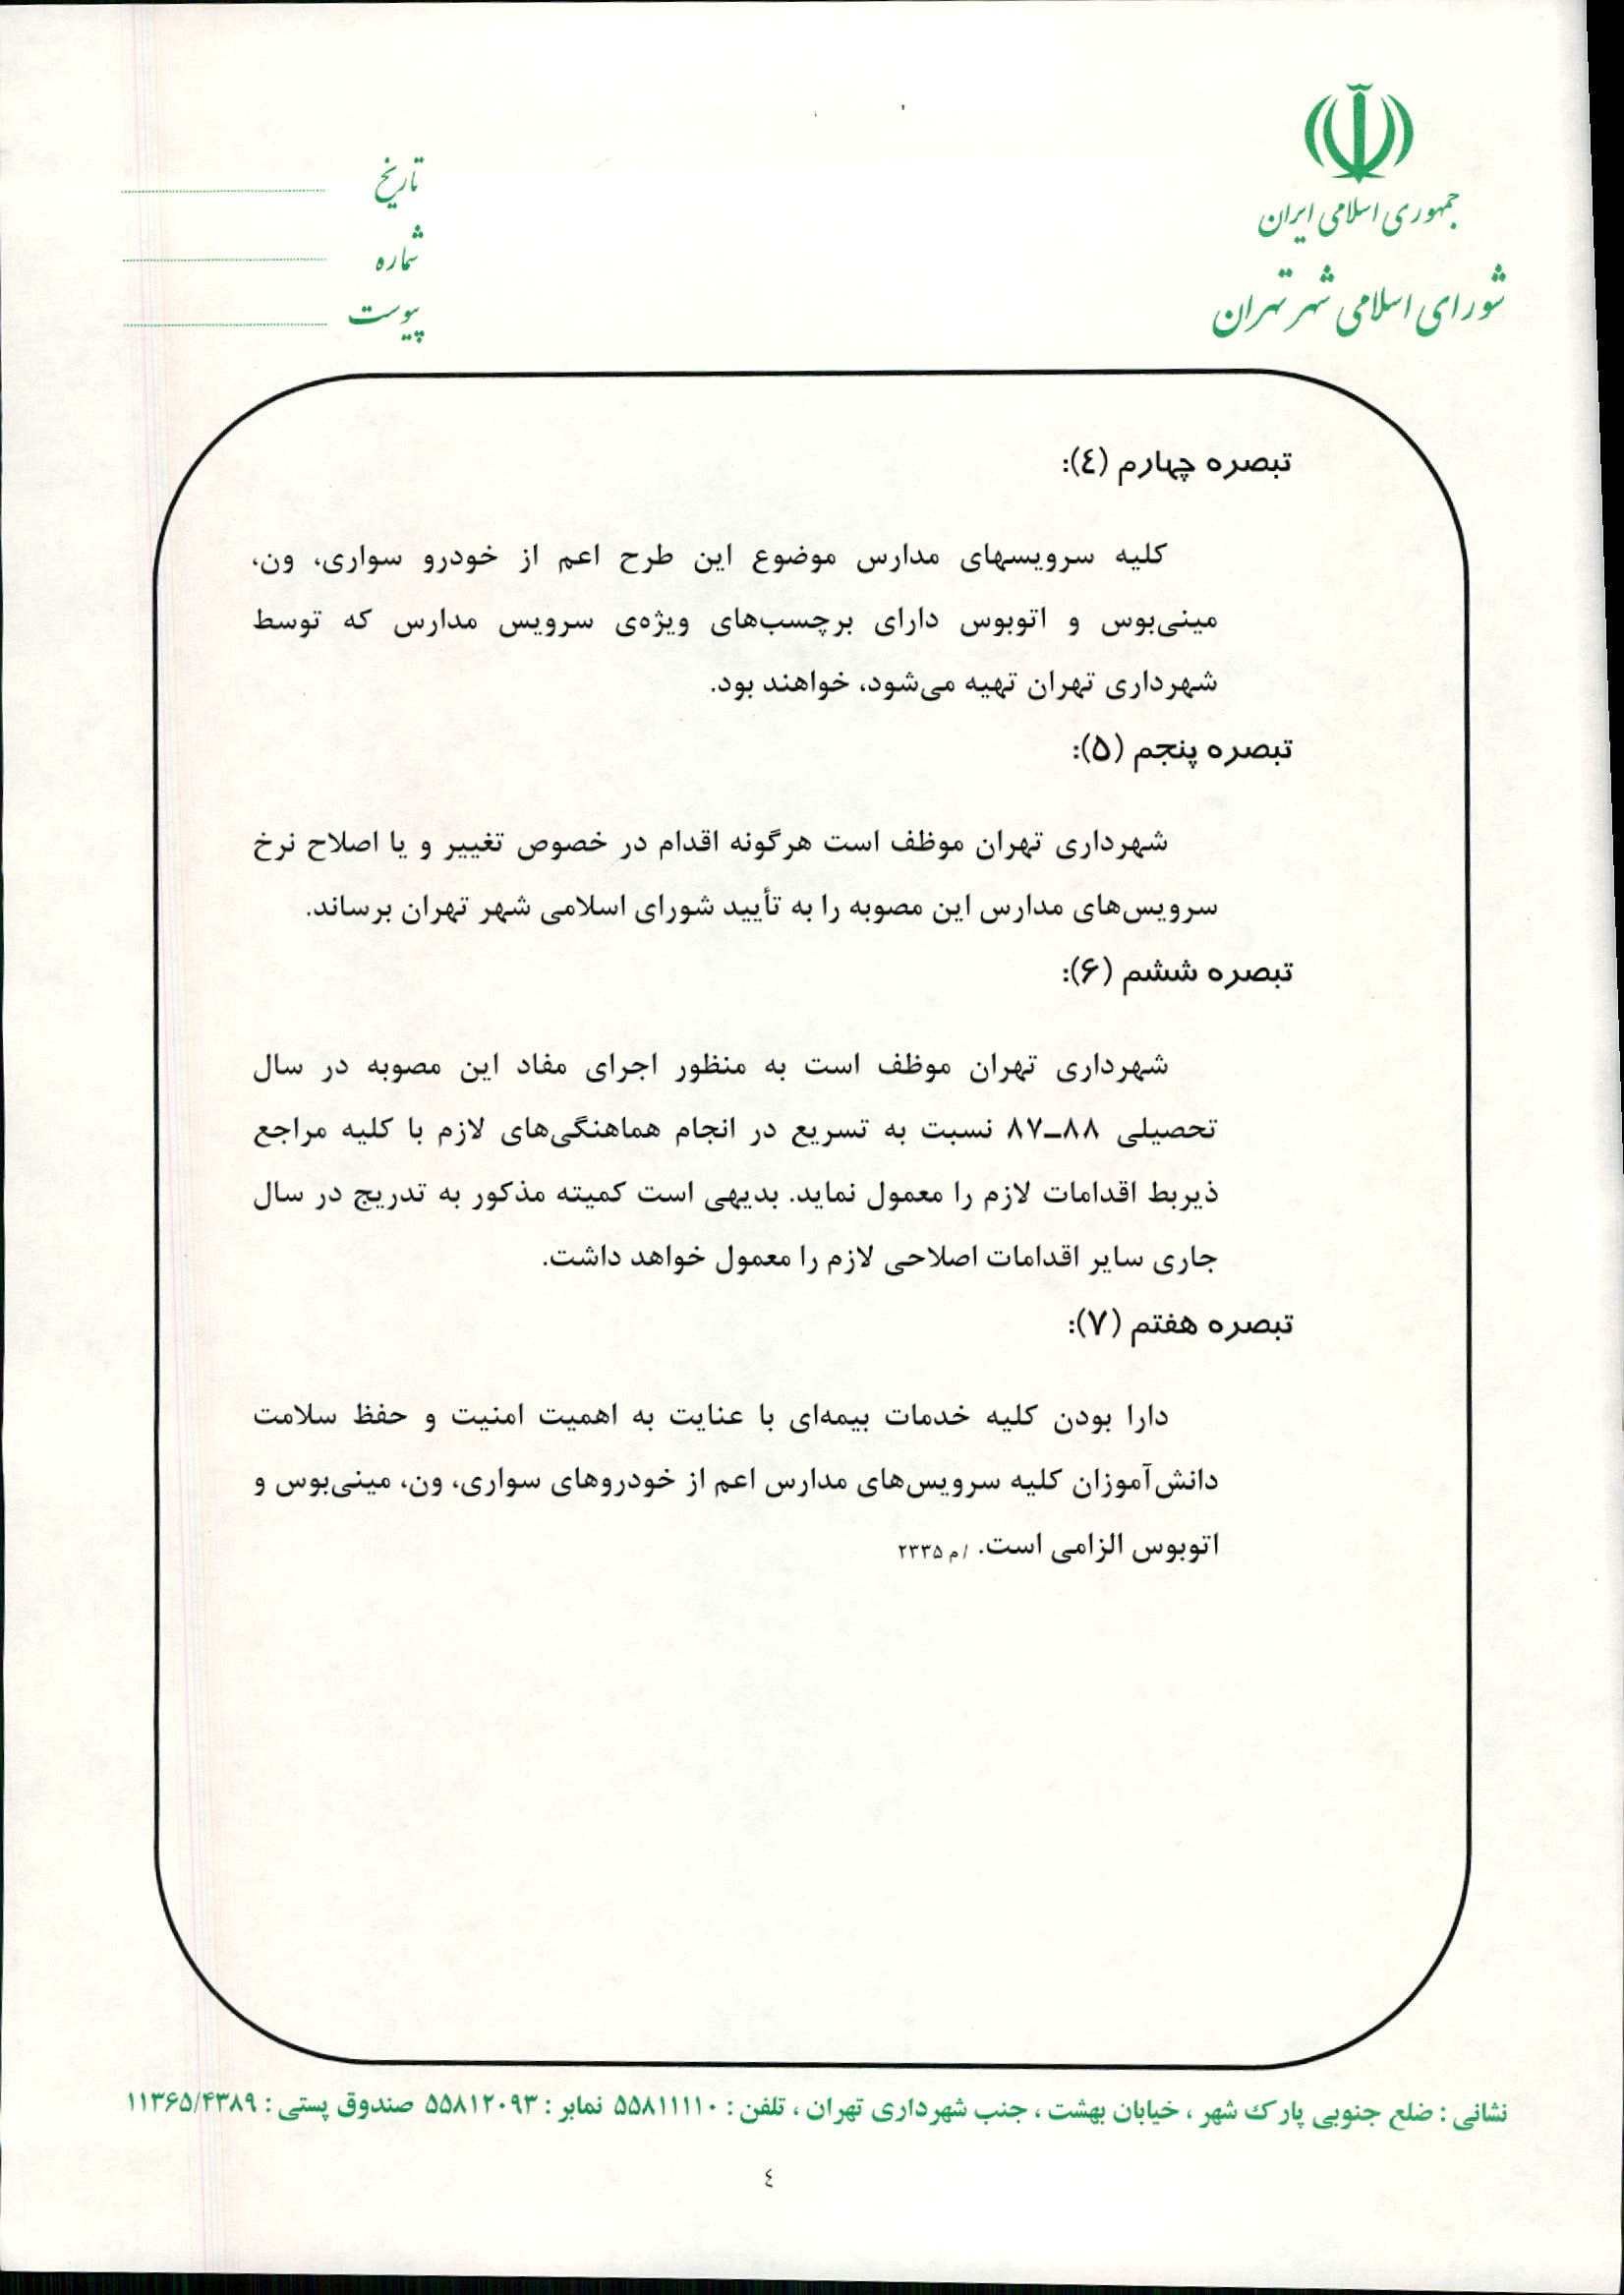 جمهوری اسلامی ایران
شورای اسلامی شهر تهران
تاریخ
شماره
پیوست
تبصره چهارم (٤):
کلیه سرویسهای مدارس موضوع این طرح اعم از خودرو سواری، ون،
مینی‌بوس و اتوبوس دارای برچسب‌های ویژه‌ی سرویس مدارس که توسط
شهرداری تهران تهیه می‌شود، خواهند بود.
تبصره پنجم (۵):
شهرداری تهران موظف است هرگونه اقدام در خصوص تغییر و یا اصلاح نرخ
سرویس‌های مدارس این مصوبه را به تأیید شورای اسلامی شهر تهران برساند.
تبصره ششم (۶):
شهرداری تهران موظف است به منظور اجرای مفاد این مصوبه در سال
تحصیلی ۸۸ـ۸۷ نسبت به تسریع در انجام هماهنگی‌های لازم با کلیه مراجع
ذیربط اقدامات لازم را معمول نماید. بدیهی است کمیته مذکور به تدریج در سال
جاری سایر اقدامات اصلاحی لازم را معمول خواهد داشت.
تبصره هفتم (۷):
دارا بودن کلیه خدمات بیمه‌ای با عنایت به اهمیت امنیت و حفظ سلامت
دانش‌آموزان کلیه سرویس‌های مدارس اعم از خودروهای سواری، ون، مینی‌بوس و
اتوبوس الزامی است. /م ۲۳۳۵
نشانی : ضلع جنوبی پارک شهر ، خیابان بهشت ، جنب شهرداری تهران ، تلفن : ۵۵۸۱۱۱۱۰ نمابر : ۵۵۸۱۲۰۹۳ صندوق پستی : ۱۱۳۶۵/۴۳۸۹
٤